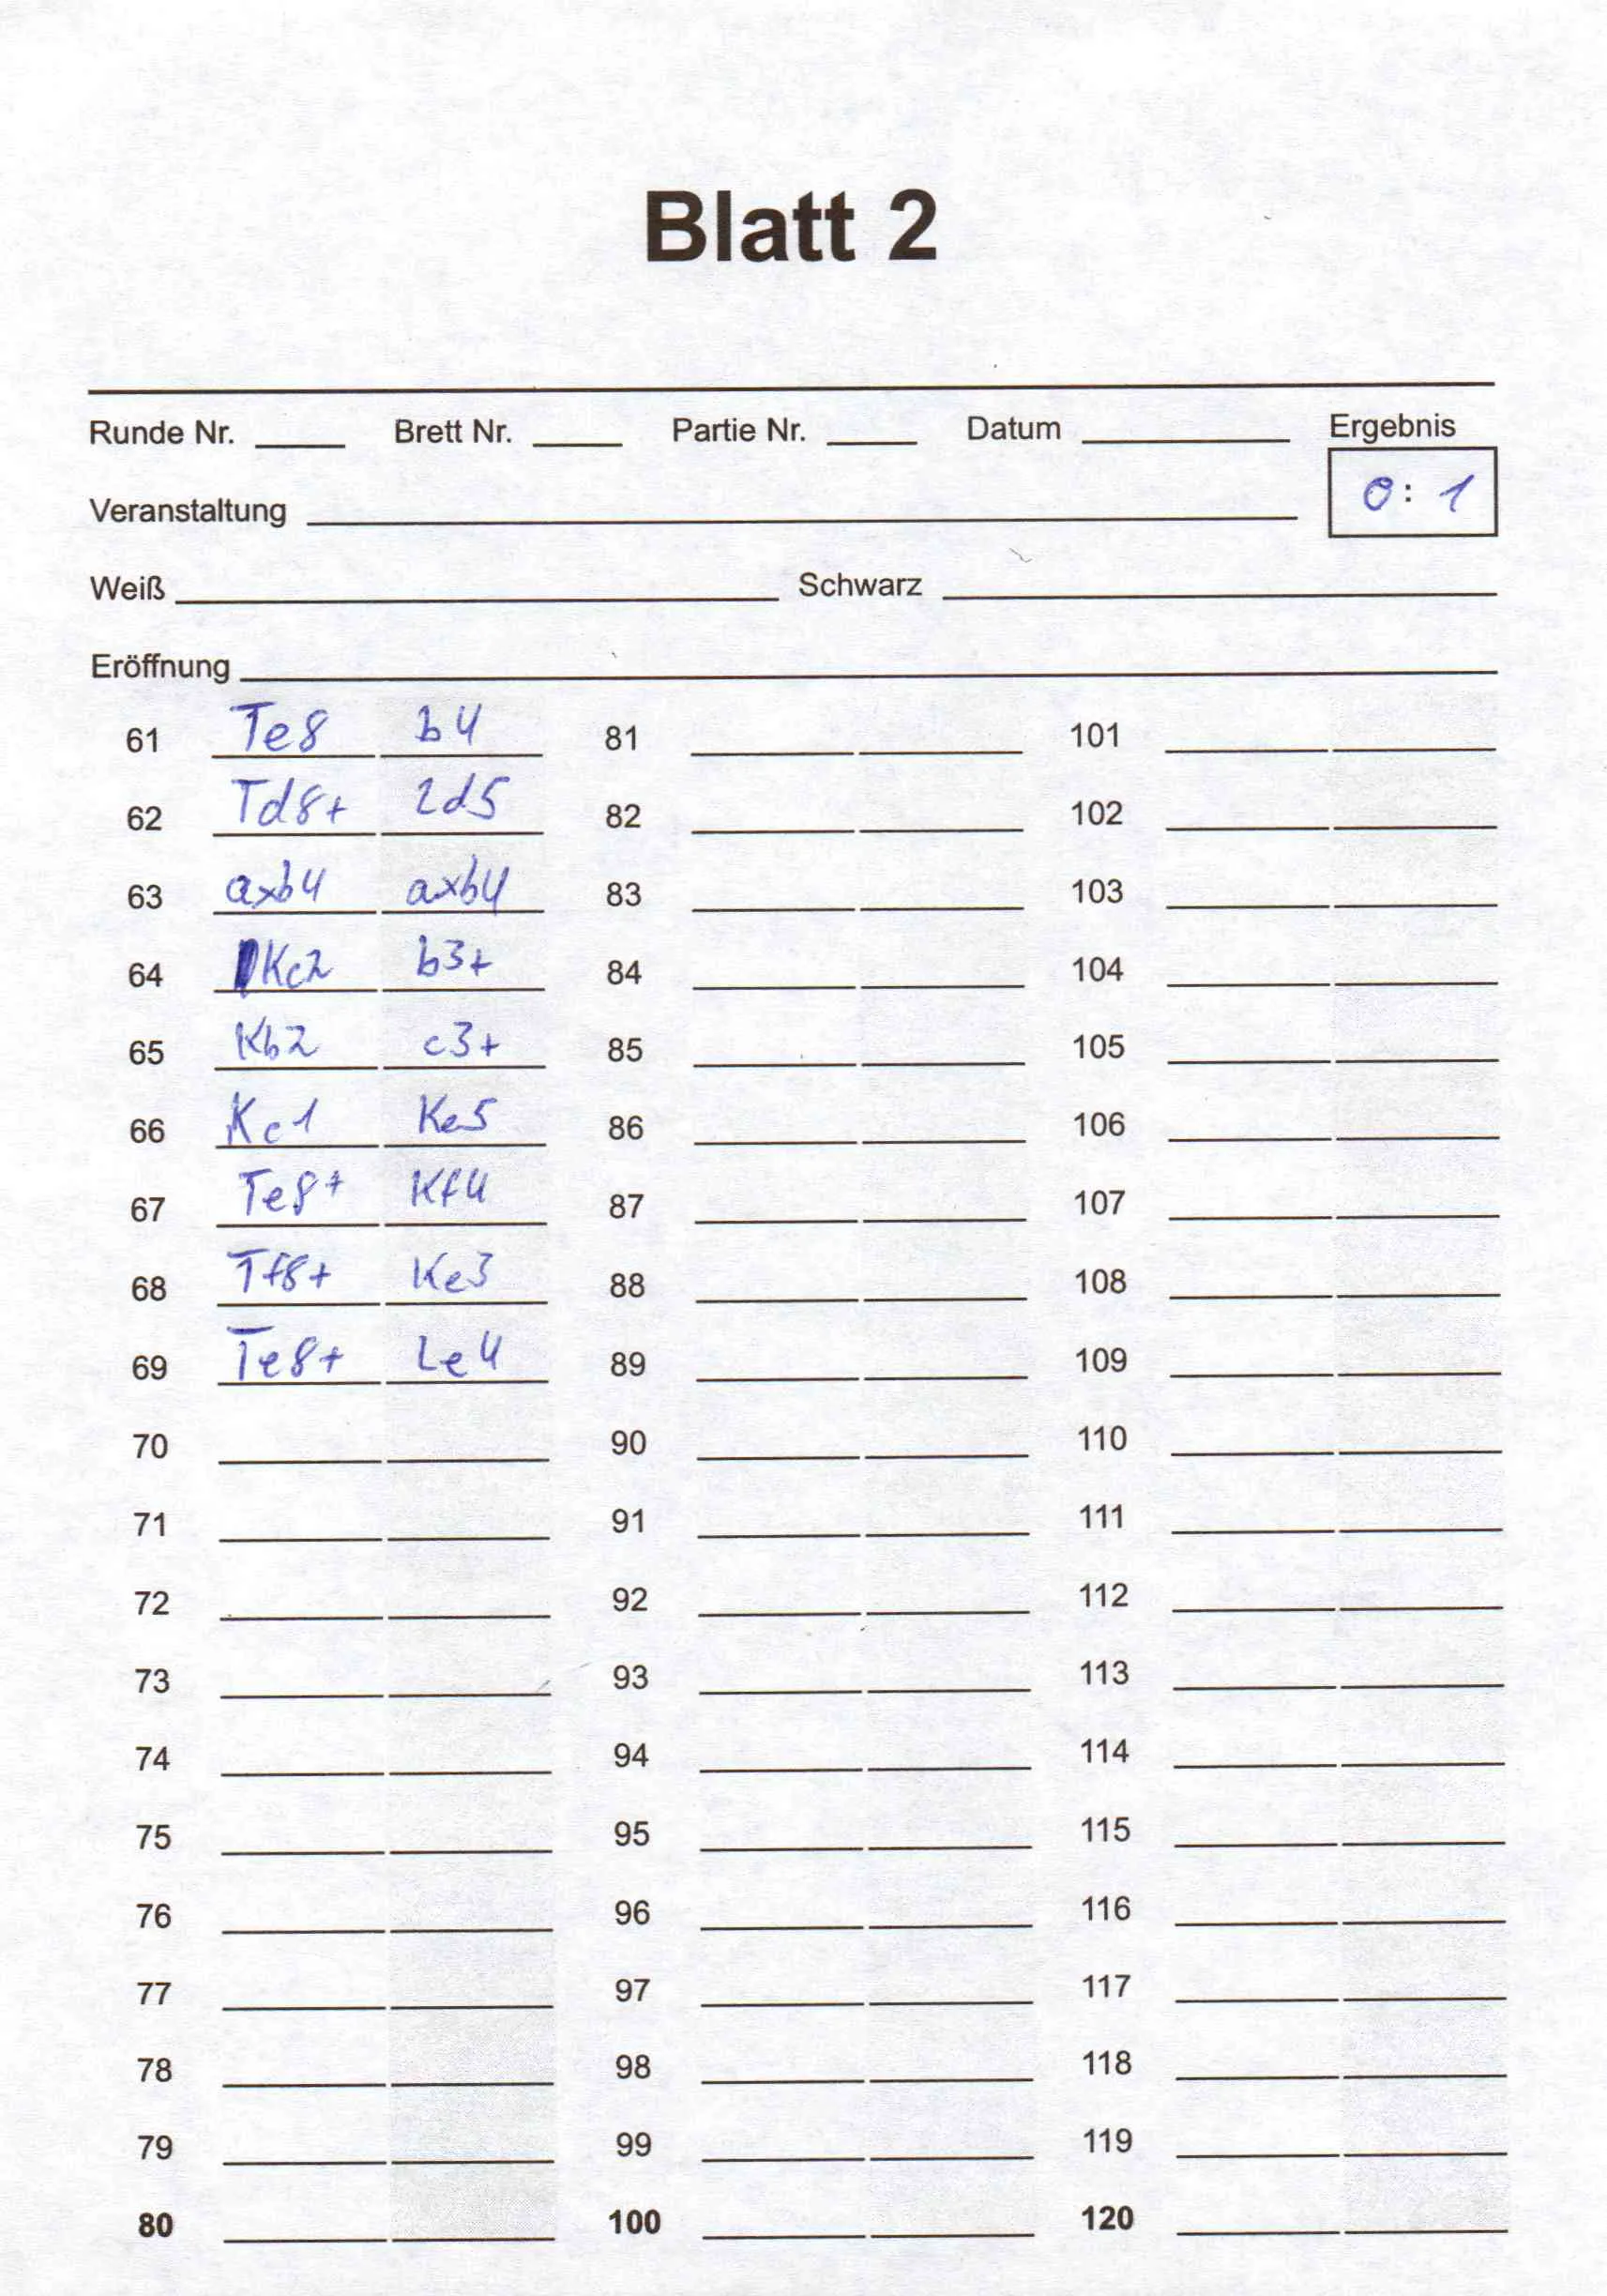 Blatt 2
Runde Nr. Brett Nr. Partie Nr. Datum Ergebnis
0:1
Veranstaltung
Weiß Schwarz
Eröffnung
61 Te8 b4 81 101
62 Td8+ Ld5 82 102
63 axb4 axb4 83 103
64 Kc2 b3+ 84 104
65 Kb2 c3+ 85 105
66 Kc1 Ke5 86 106
67 Te8+ Kf4 87 107
68 Tf8+ Ke3 88 108
69 Te8+ Le4 89 109
70 90 110
71 91 111
72 92 112
73 93 113
74 94 114
75 95 115
76 96 116
77 97 117
78 98 118
79 99 119
80 100 120